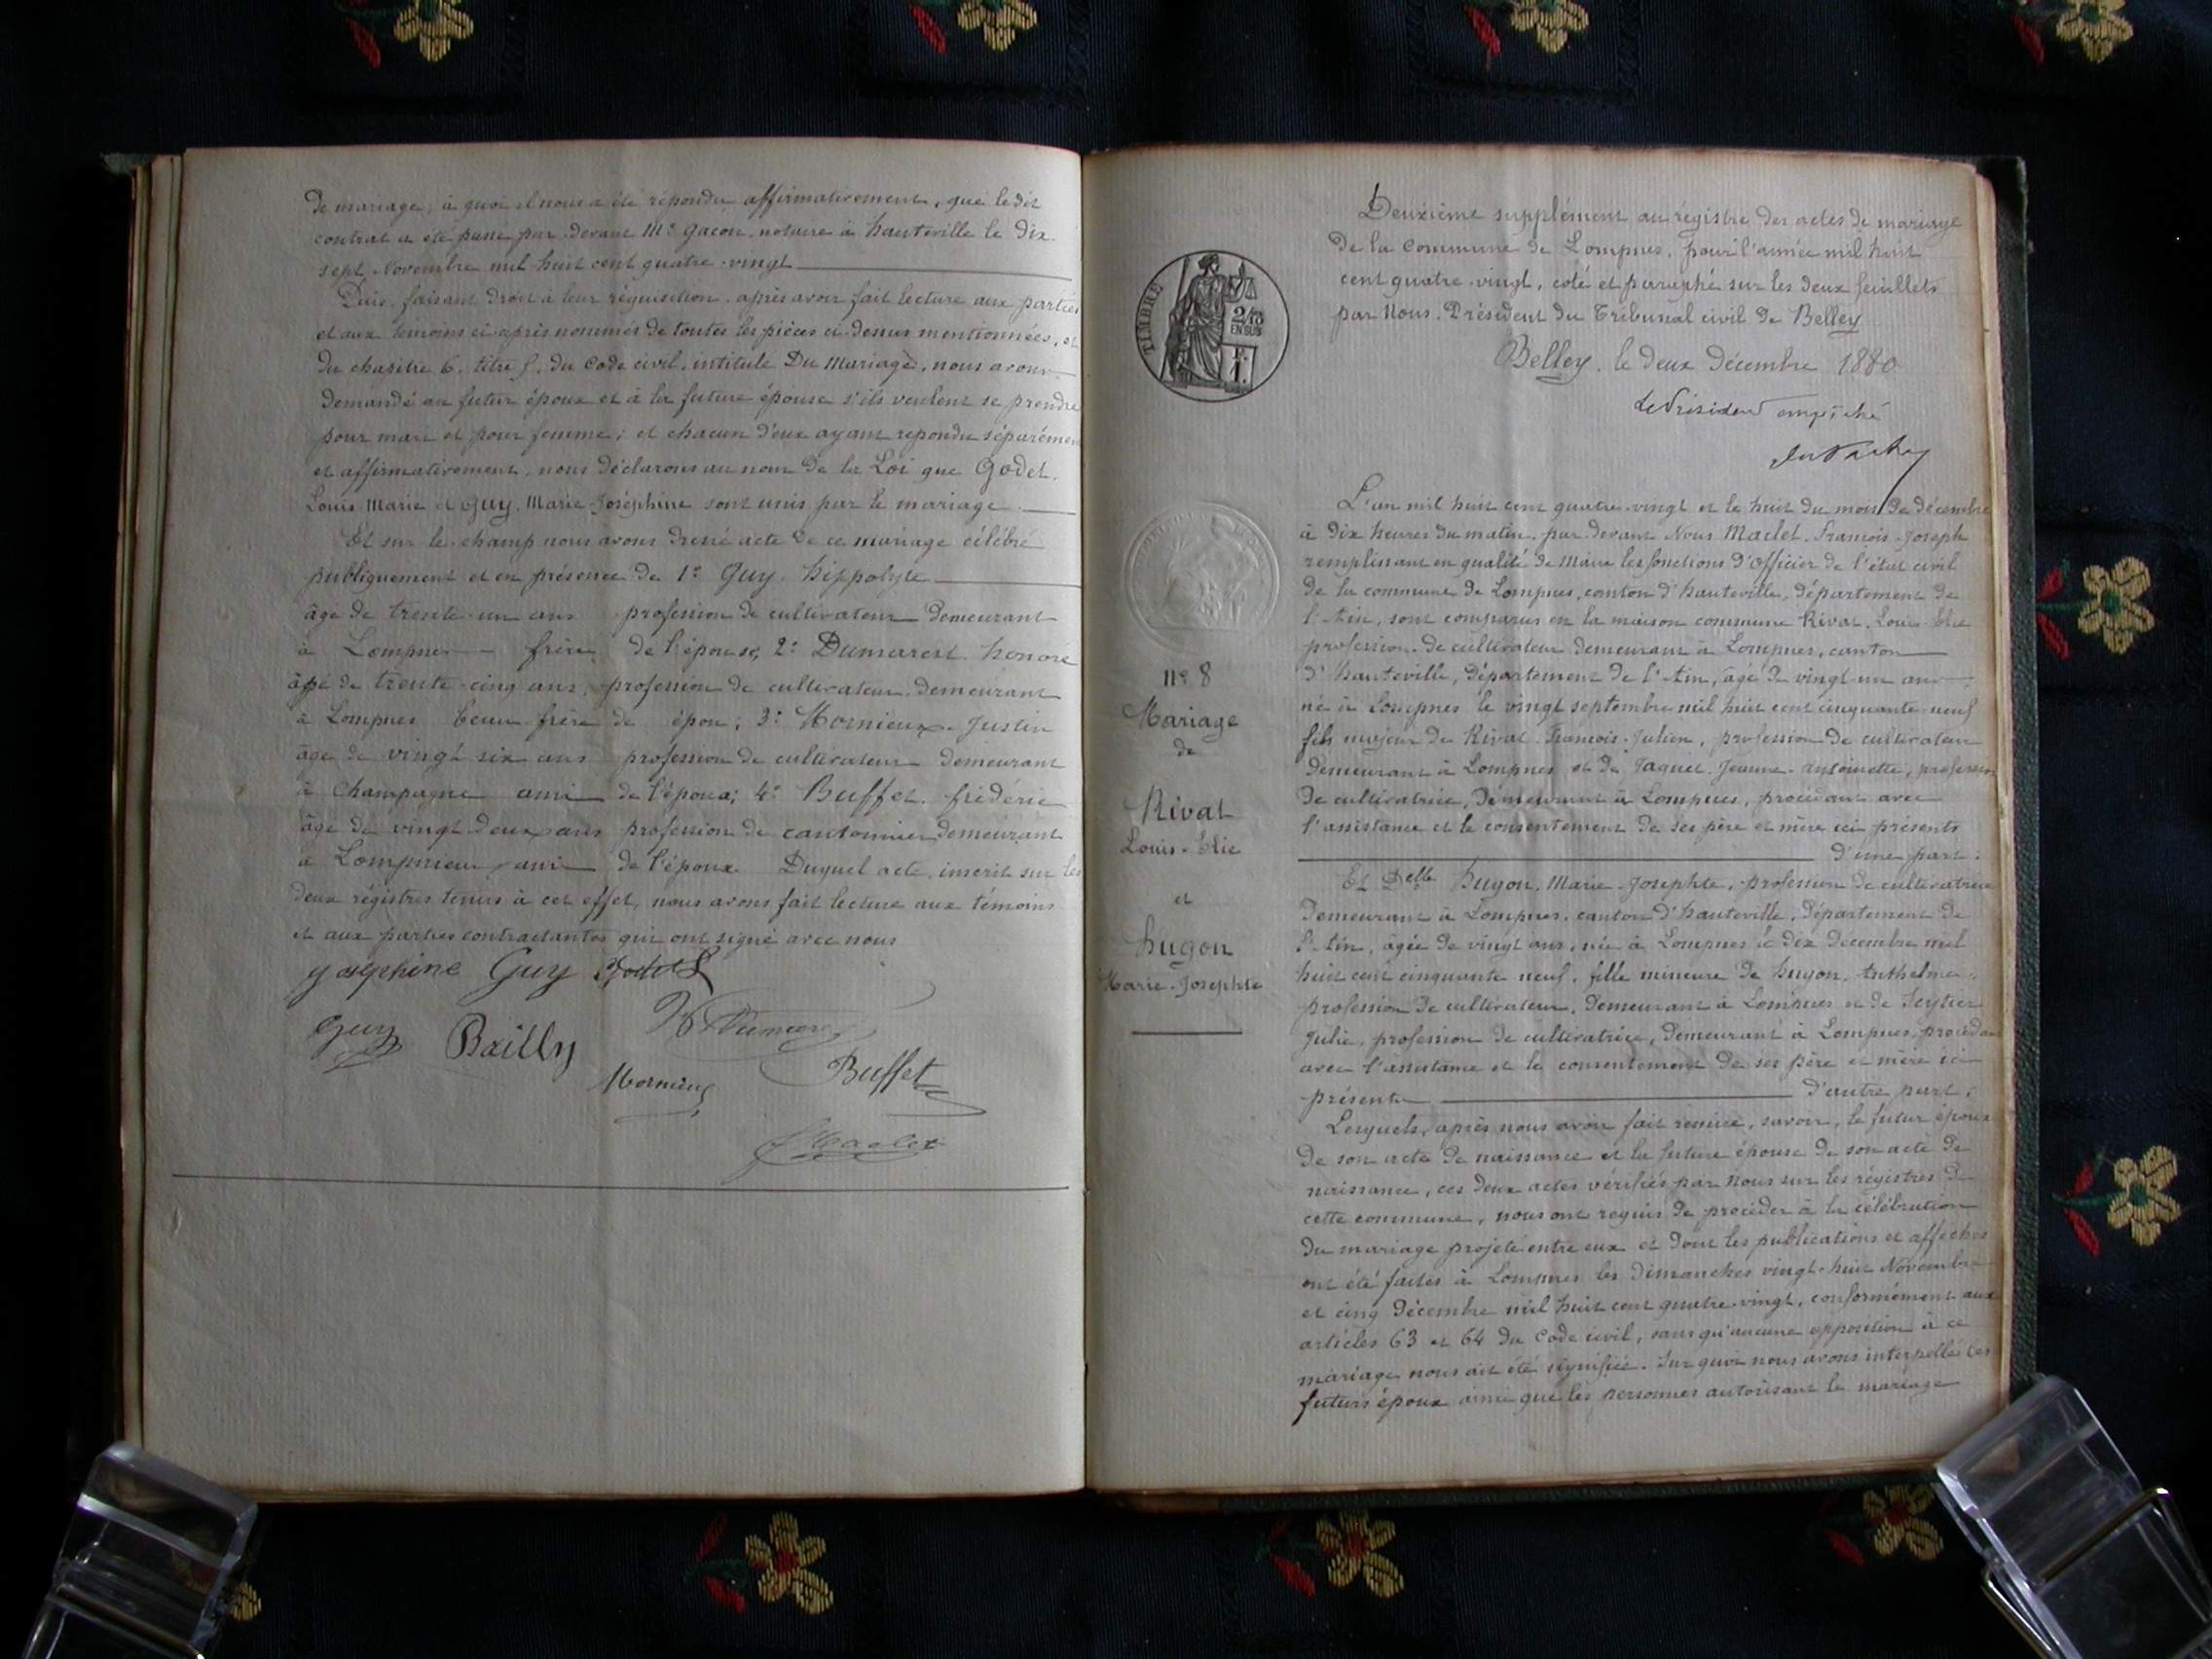 de mariage, à quoi il nous a été répondu affirmativement, que ledit
contrat a été passé par devant Me Gacon, notaire à hauteville le dix
sept Novembre mil huit cent quatre-vingt
Puis, faisant droit à leur réquisition, après avoir fait lecture aux parties
et aux témoins ci-après nommés de toutes les pièces ci-dessus mentionnées, et
du chapitre 6, titre 5, du Code civil, intitulé Du Mariage, nous avons
demandé au futur époux et à la future épouse s'ils veulent se prendre
pour mari et pour femme; et chacun d'eux ayant répondu séparément
et affirmativement, nous déclarons au nom de la Loi que Godet,
Louis-Marie et Guy, Marie-Joséphine sont unis par le mariage
Et sur-le-champ nous avons dressé acte de ce mariage célébré
publiquement et en présence de 1° Guy, hippolyte
âgé de trente-un ans profession de cultivateur demeurant
à Lompnes frère de l'épouse; 2° Dumarest, honoré
âgé de trente-cinq ans, profession de cultivateur, demeurant
à Lompnes beau-frère de épou; 3° Mornieux-Justin
âgé de vingt six ans profession de cultivateur demeurant
à Champagne ami de l'époux; 4° Buffet, frédéric
âgé de vingt-deux ans profession de cantonnier demeurant
à Lompnieu ami de l'époux. Duquel acte, inscrit sur les
deux régistres tenus à cet effet, nous avons fait lecture aux témoins
et aux parties contractantes qui ont signé avec nous
Joséphine Guy Godet L
Guy Bailly
Mornieux Buffet
Maclet
TIMBRE
2/10
EN SUS
F.
1.
Deuxième supplément au régistre des actes de mariage
de la Commune de Lompnes, pour l'année mil huit
cent quatre-vingt, coté et paraphé sur les deux feuillets
par Nous, Président du Tribunal civil de Belley
Belley, le deux décembre 1880
Le Président empêché
N° 8
Mariage
de
Rivat
Louis-Elie
et
hugon
Marie-Josephte
L'an mil huit cent quatre-vingt et le huit du mois de décembre
à dix heures du matin, par devant Nous Maclet, François-Joseph
remplissant en qualité de Maire les fonctions d'Officier de l'état civil
de la commune de Lompnes, canton d'hauteville, département de
l'Ain, sont comparus en la maison commune Rivat, Louis-Elie
profession de cultivateur demeurant à Lompnes, canton
d'hauteville, département de l'Ain, âgé de vingt-un ans
né à Lompnes le vingt septembre mil huit cent cinquante-neuf
fils majeur de Rivat François-Julien, profession de cultivateur
demeurant à Lompnes et de Jaquet Jeanne-Antoinette, profession
de cultivatrice, demeurant à Lompnes, procédant avec
l'assistance et le consentement de ses père et mère ici présents
d'une part;
Et Delle hugon, Marie-Josephte, profession de cultivatrice
demeurant à Lompnes, canton d'hauteville, département de
l'Ain, âgée de vingt ans, née à Lompnes le dix décembre mil
huit cent cinquante neuf, fille mineure de hugon, Anthelme
profession de cultivateur, demeurant à Lompnes et de Seytier
Julie, profession de cultivatrice, demeurant à Lompnes, procédant
avec l'assistance et le consentement de ses père et mère ici
présents d'autre part;
Lesquels, après nous avoir fait remise, savoir, le futur époux
de son acte de naissance et la future épouse de son acte de
naissance, ces deux actes vérifiés par Nous sur les régistres de
cette commune, nous ont requis de procéder à la célébration
du mariage projeté entre eux et dont les publications et affiches
ont été faites à Lompnes les dimanches vingt-huit Novembre
et cinq décembre mil huit cent quatre-vingt, conformément aux
articles 63 et 64 du Code civil, sans qu'aucune opposition à ce
mariage nous ait été signifiée. Sur quoi nous avons interpellé les
futurs époux ainsi que les personnes autorisant le mariage